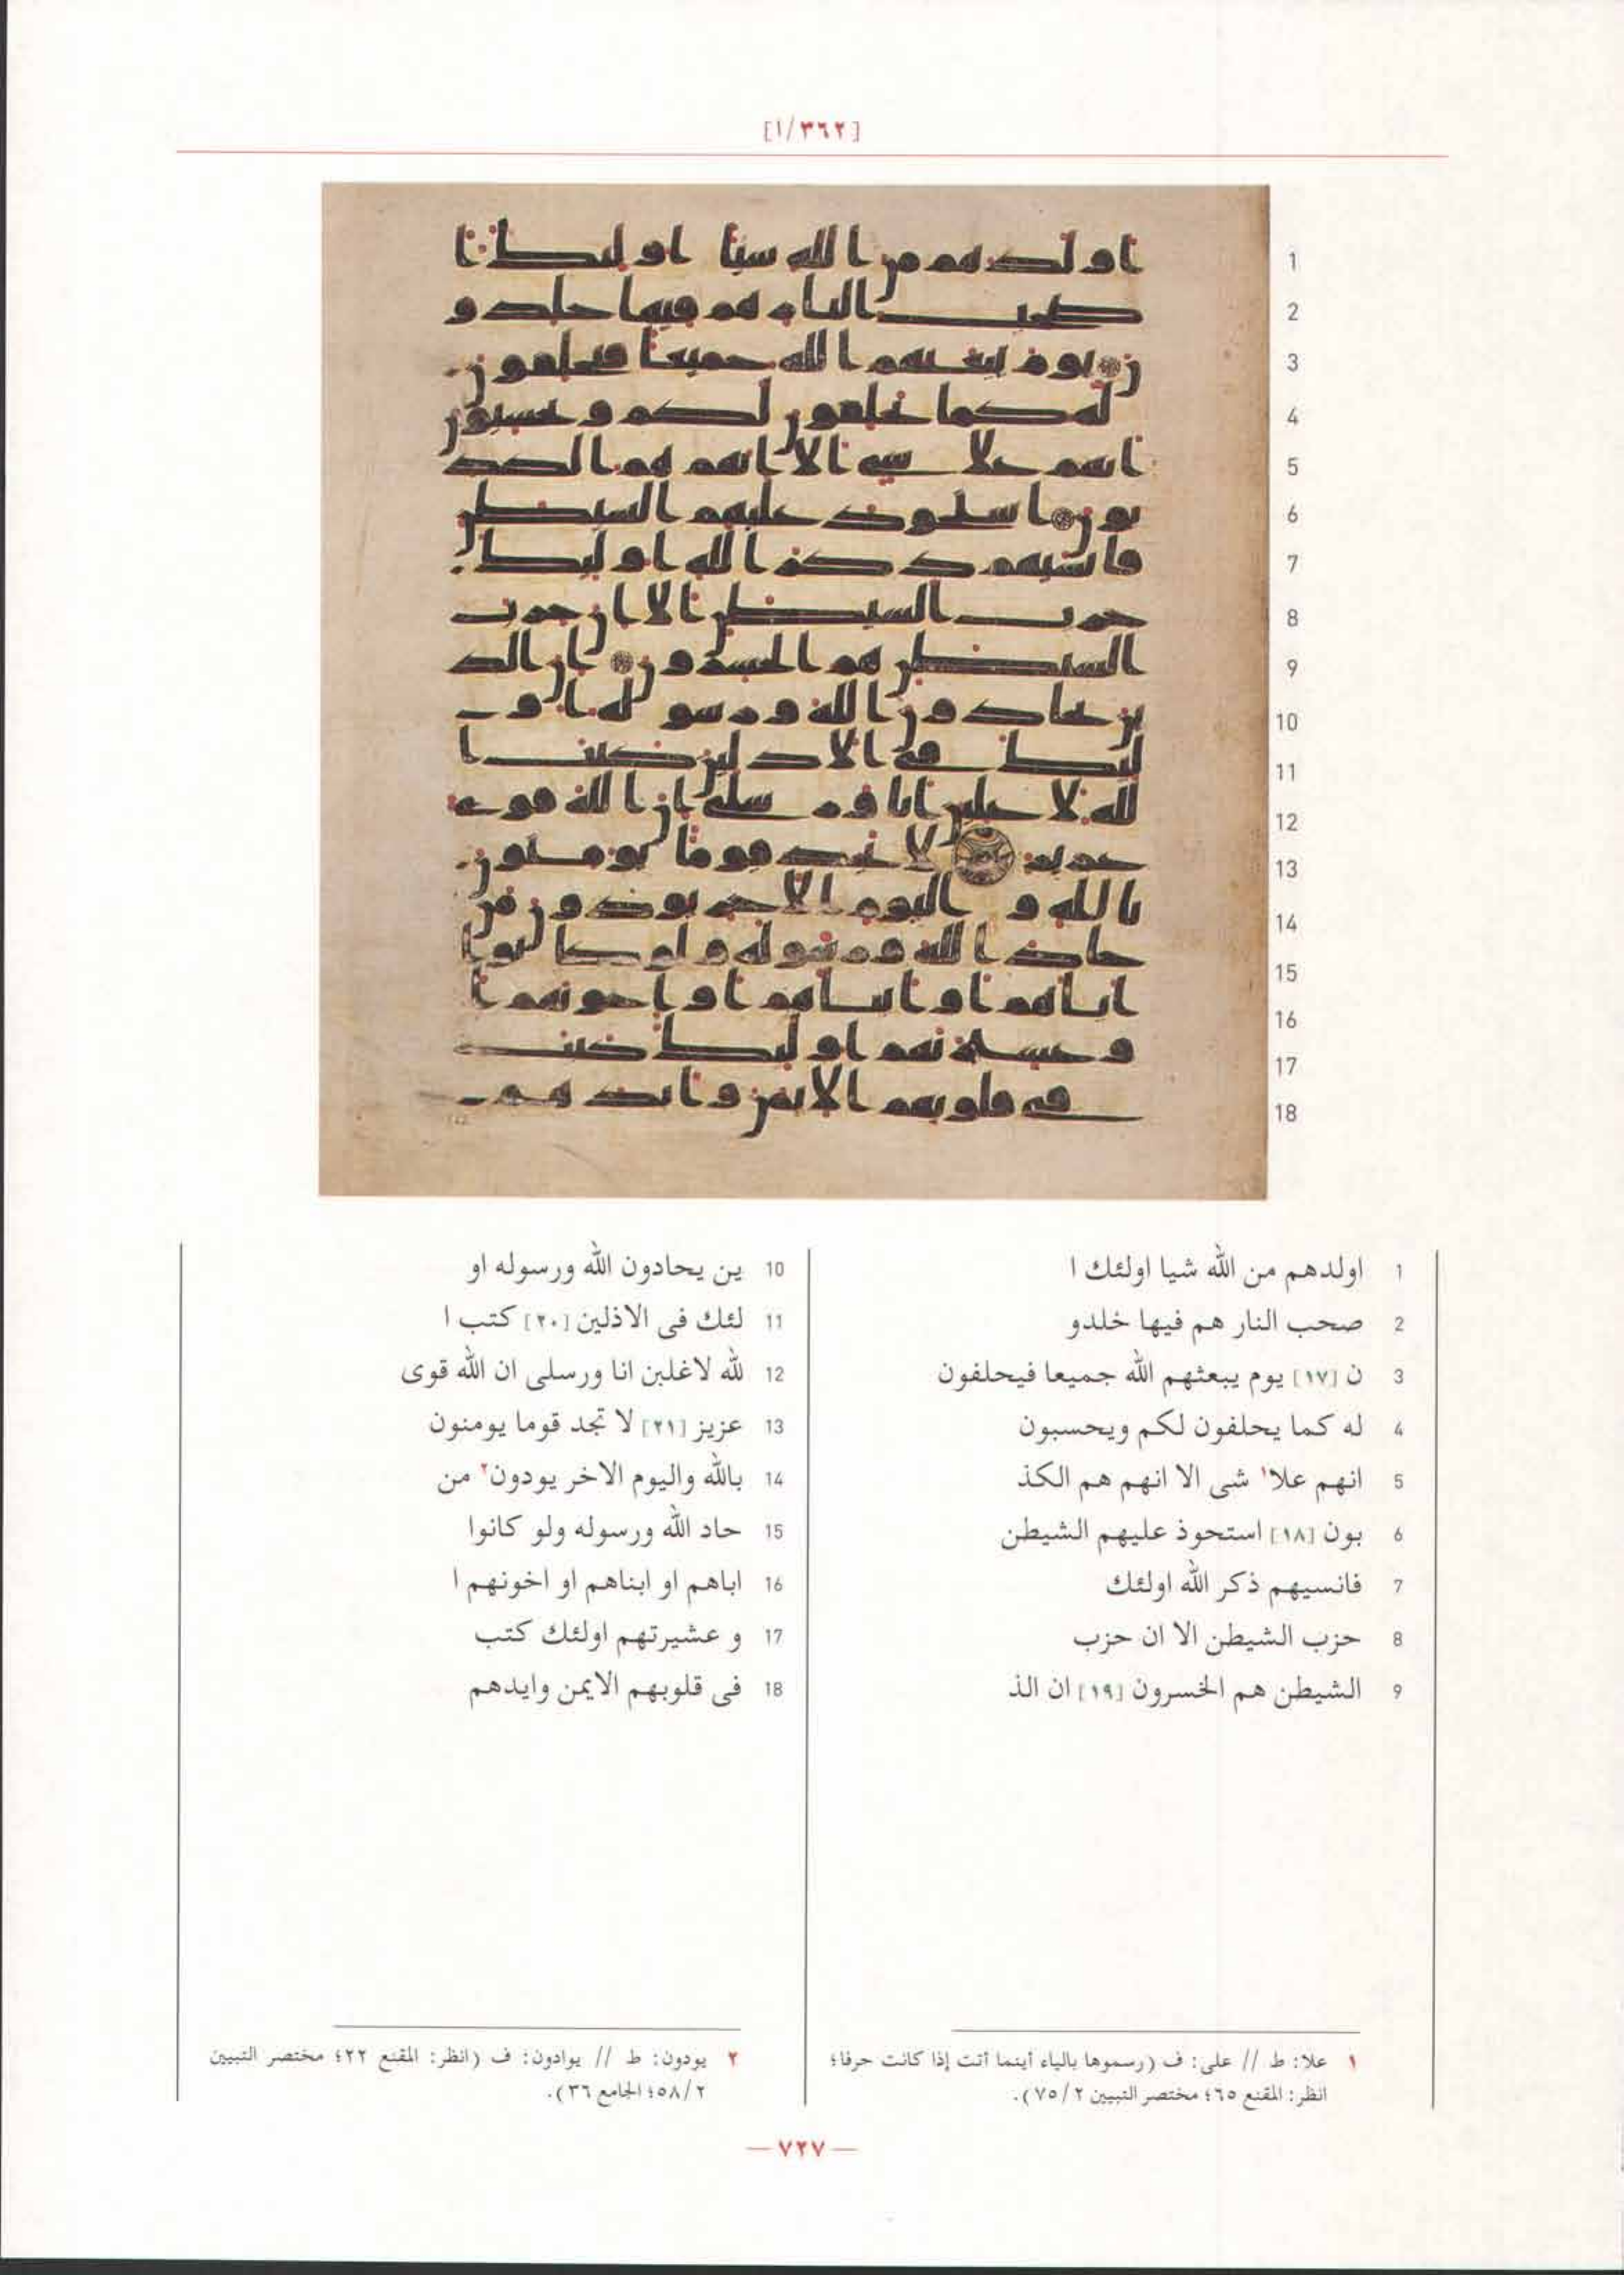 [٣٦٢/١]
1 اولدهم من الله شيا اولئك ا
2 صحب النار هم فيها خلدو
3 ن [١٧] يوم يبعثهم الله جميعا فيحلفون
4 له كما يحلفون لكم ويحسبون
5 انهم علا١ شى الا انهم هم الكذ
6 بون [١٨] استحوذ عليهم الشيطن
7 فانسيهم ذكر الله اولئك
8 حزب الشيطن الا ان حزب
9 الشيطن هم الخسرون [١٩] ان الذ
10 ين يحادون الله ورسوله او
11 لئك فى الاذلين [٢٠] كتب ا
12 لله لاغلبن انا ورسلى ان الله قوى
13 عزيز [٢١] لا تجد قوما يومنون
14 بالله واليوم الاخر يودون٢ من
15 حاد الله ورسوله ولو كانوا
16 اباهم او ابناهم او اخونهم ا
17 و عشيرتهم اولئك كتب
18 فى قلوبهم الايمن وايدهم
١ علا: ط // على: ف (رسموها بالياء أينما أتت إذا كانت حرفا؛
انظر: المقنع ٦٥؛ مختصر التبيين ٧٥/٢).
٢ يودون: ط // يوادون: ف (انظر: المقنع ٢٢؛ مختصر التبيين
٥٨/٢؛ الجامع ٣٦).
— ٧٢٧ —